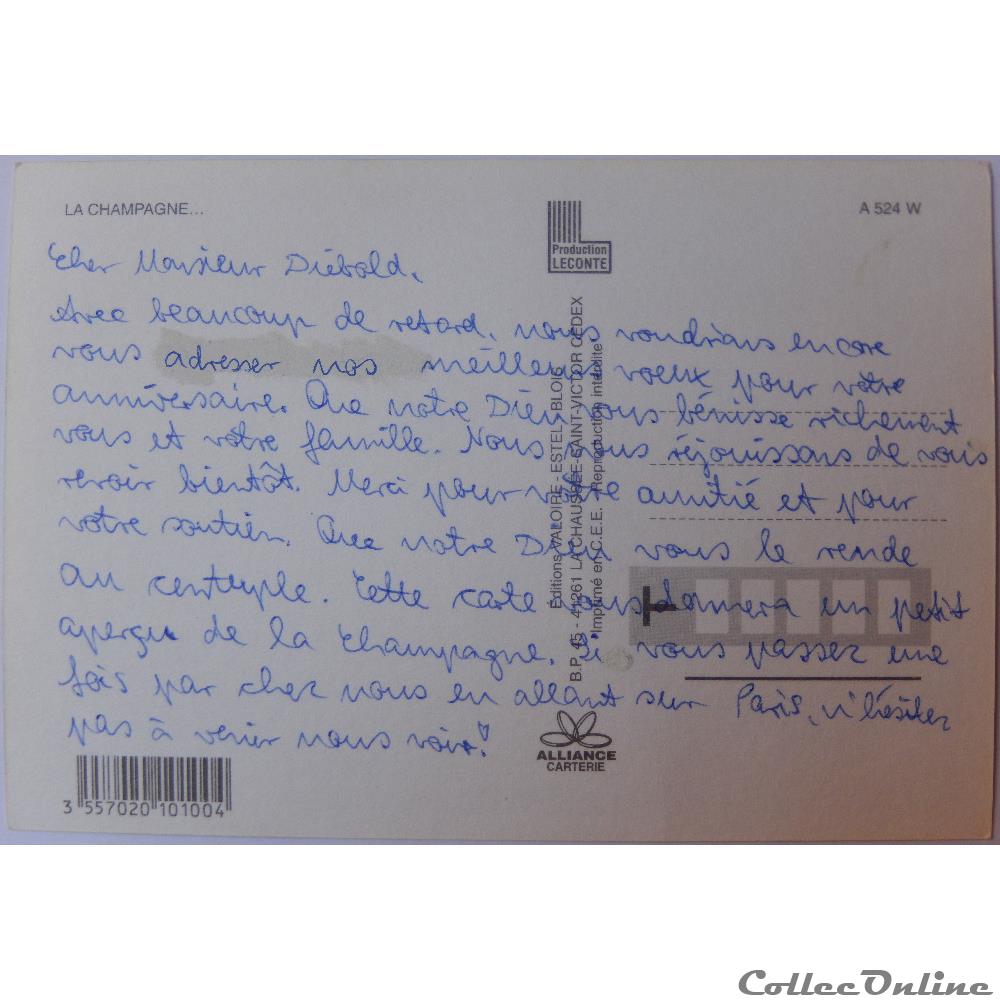 LA CHAMPAGNE...
A 524 W
Production
LECONTE
Cher Monsieur Diébold,
Avec beaucoup de retard, nous voudrions encore
vous adresser nos meilleurs voeux pour vôtre
anniversaire. Que notre Dieu vous bénisse richement
vous et vôtre famille. Nous nous réjouissons de vous
revoir bientôt. Merci pour vôtre amitié et pour
votre soutien. Que notre Dieu vous le rende
au centuple. Cette carte vous donnera un petit
aperçu de la Champagne. Si vous passez une
fois par chez nous en allant sur Paris, n'hésitez
pas à venir nous voir!
Editions VALOIRE - ESTEL - BLOIS
B.P. 45 - 41261 LA CHAUSSÉE-SAINT-VICTOR CEDEX
Imprimé en C.E.E. - Reproduction interdite
T
ALLIANCE
CARTERIE
3 557020 101004
CollecOnline